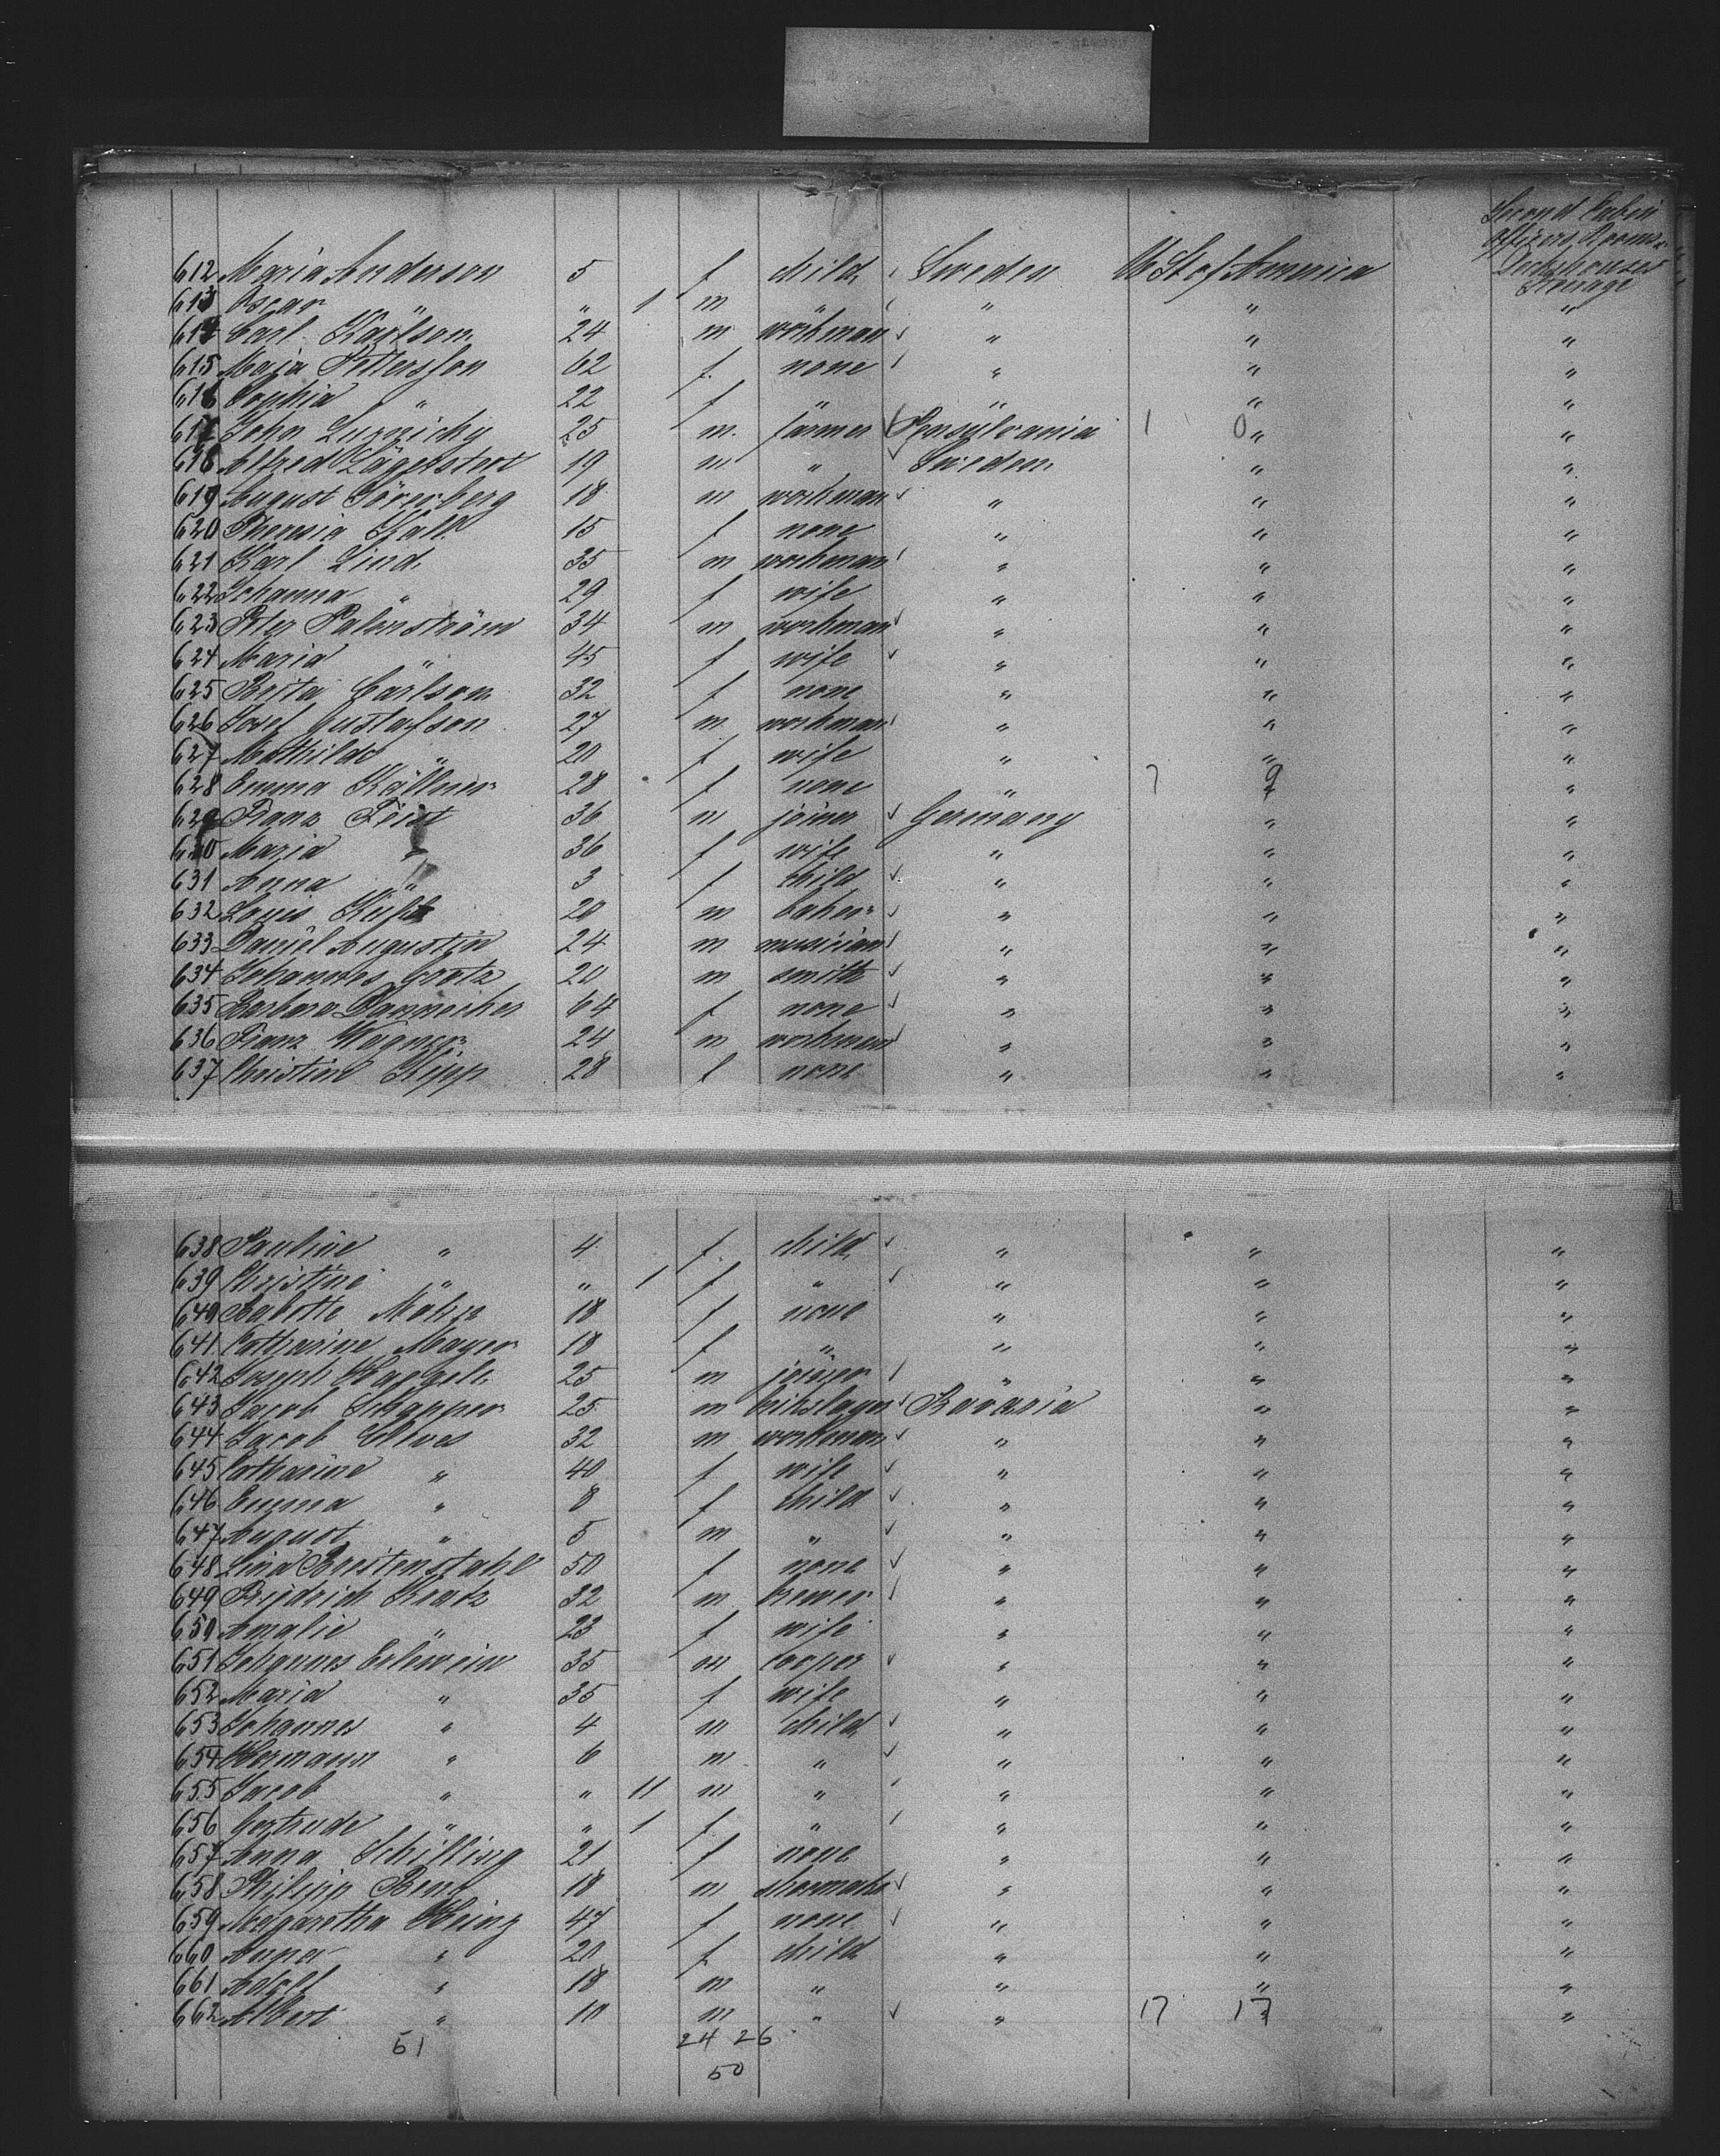 Second Cabin
Officers Rooms
Deckhouses
612 Maria Anderson 5 f child Sweden U St of America Steerage
613 Oscar " " 1 m " " " "
614 Carl Karlson 24 m workman " " "
615 Maja Pettersson 62 f none " " "
616 Sophia " 22 f " " " "
617 John 25 m farmer Pensylvania 1 0 " "
618 Alfred Lägerstert 19 m " Sweden " "
619 August 18 m workman " " "
620 Theresia 15 f none " " "
621 Karl Lind 35 m workman " " "
622 Johanna " 29 f wife " " "
623 Peter Palmström 34 m workman " " "
624 Maria " 45 f wife " " "
625 Brita Carlson 32 f none " " "
626 Josef Gustafson 27 m workman " " "
627 Mathilde " 20 f wife " " "
628 Emma Källner 28 f none " 7 9 " "
629 Franz Feist 36 m joiner Germany " "
630 Maria " 36 f wife " " "
631 Anna " 3 f child " " "
632 Louis 20 m baker " " "
633 Daniel Augustin 24 m musician " " "
634 Johannes Grotz 20 m smith " " "
635 Barbara Dannecker 64 f none " " "
636 Franz Wagner 24 m workman " " "
637 Christine Hipp 28 f none " " "
638 Pauline " 4 f child " " "
639 Christine " " 1 f " " " "
640 Babette 18 f none " " "
641 Catharine Mayer 18 f " " " "
642 Joseph 25 m joiner " " "
643 Jacob Schapper 25 m Bavaria " "
644 Jacob 32 m workman " " "
645 Catharine " 40 f wife " " "
646 Emma " 8 f child " " "
647 August " 5 m " " " "
648 Lina Breitenstahl 50 f none " " "
649 Fridrich Kratz 32 m brewer " " "
650 Amalie " 23 f wife " " "
651 Johannes Erlewein 35 m cooper " " "
652 Maria " 35 f wife " " "
653 Johannes " 4 m child " " "
654 Hermann " 6 m " " " "
655 Jacob " " 11 m " " " "
656 Gertrude " " 1 f " " " "
657 Anna Schilling 21 f none " " "
658 Philipp 18 m shoemaker " " "
659 Magaretha Heinz 47 f none " " "
660 " 20 f child " " "
661 Adolf " 18 m " " " "
662 Albert " 10 m " " 17 17 " "
51 24 26
50